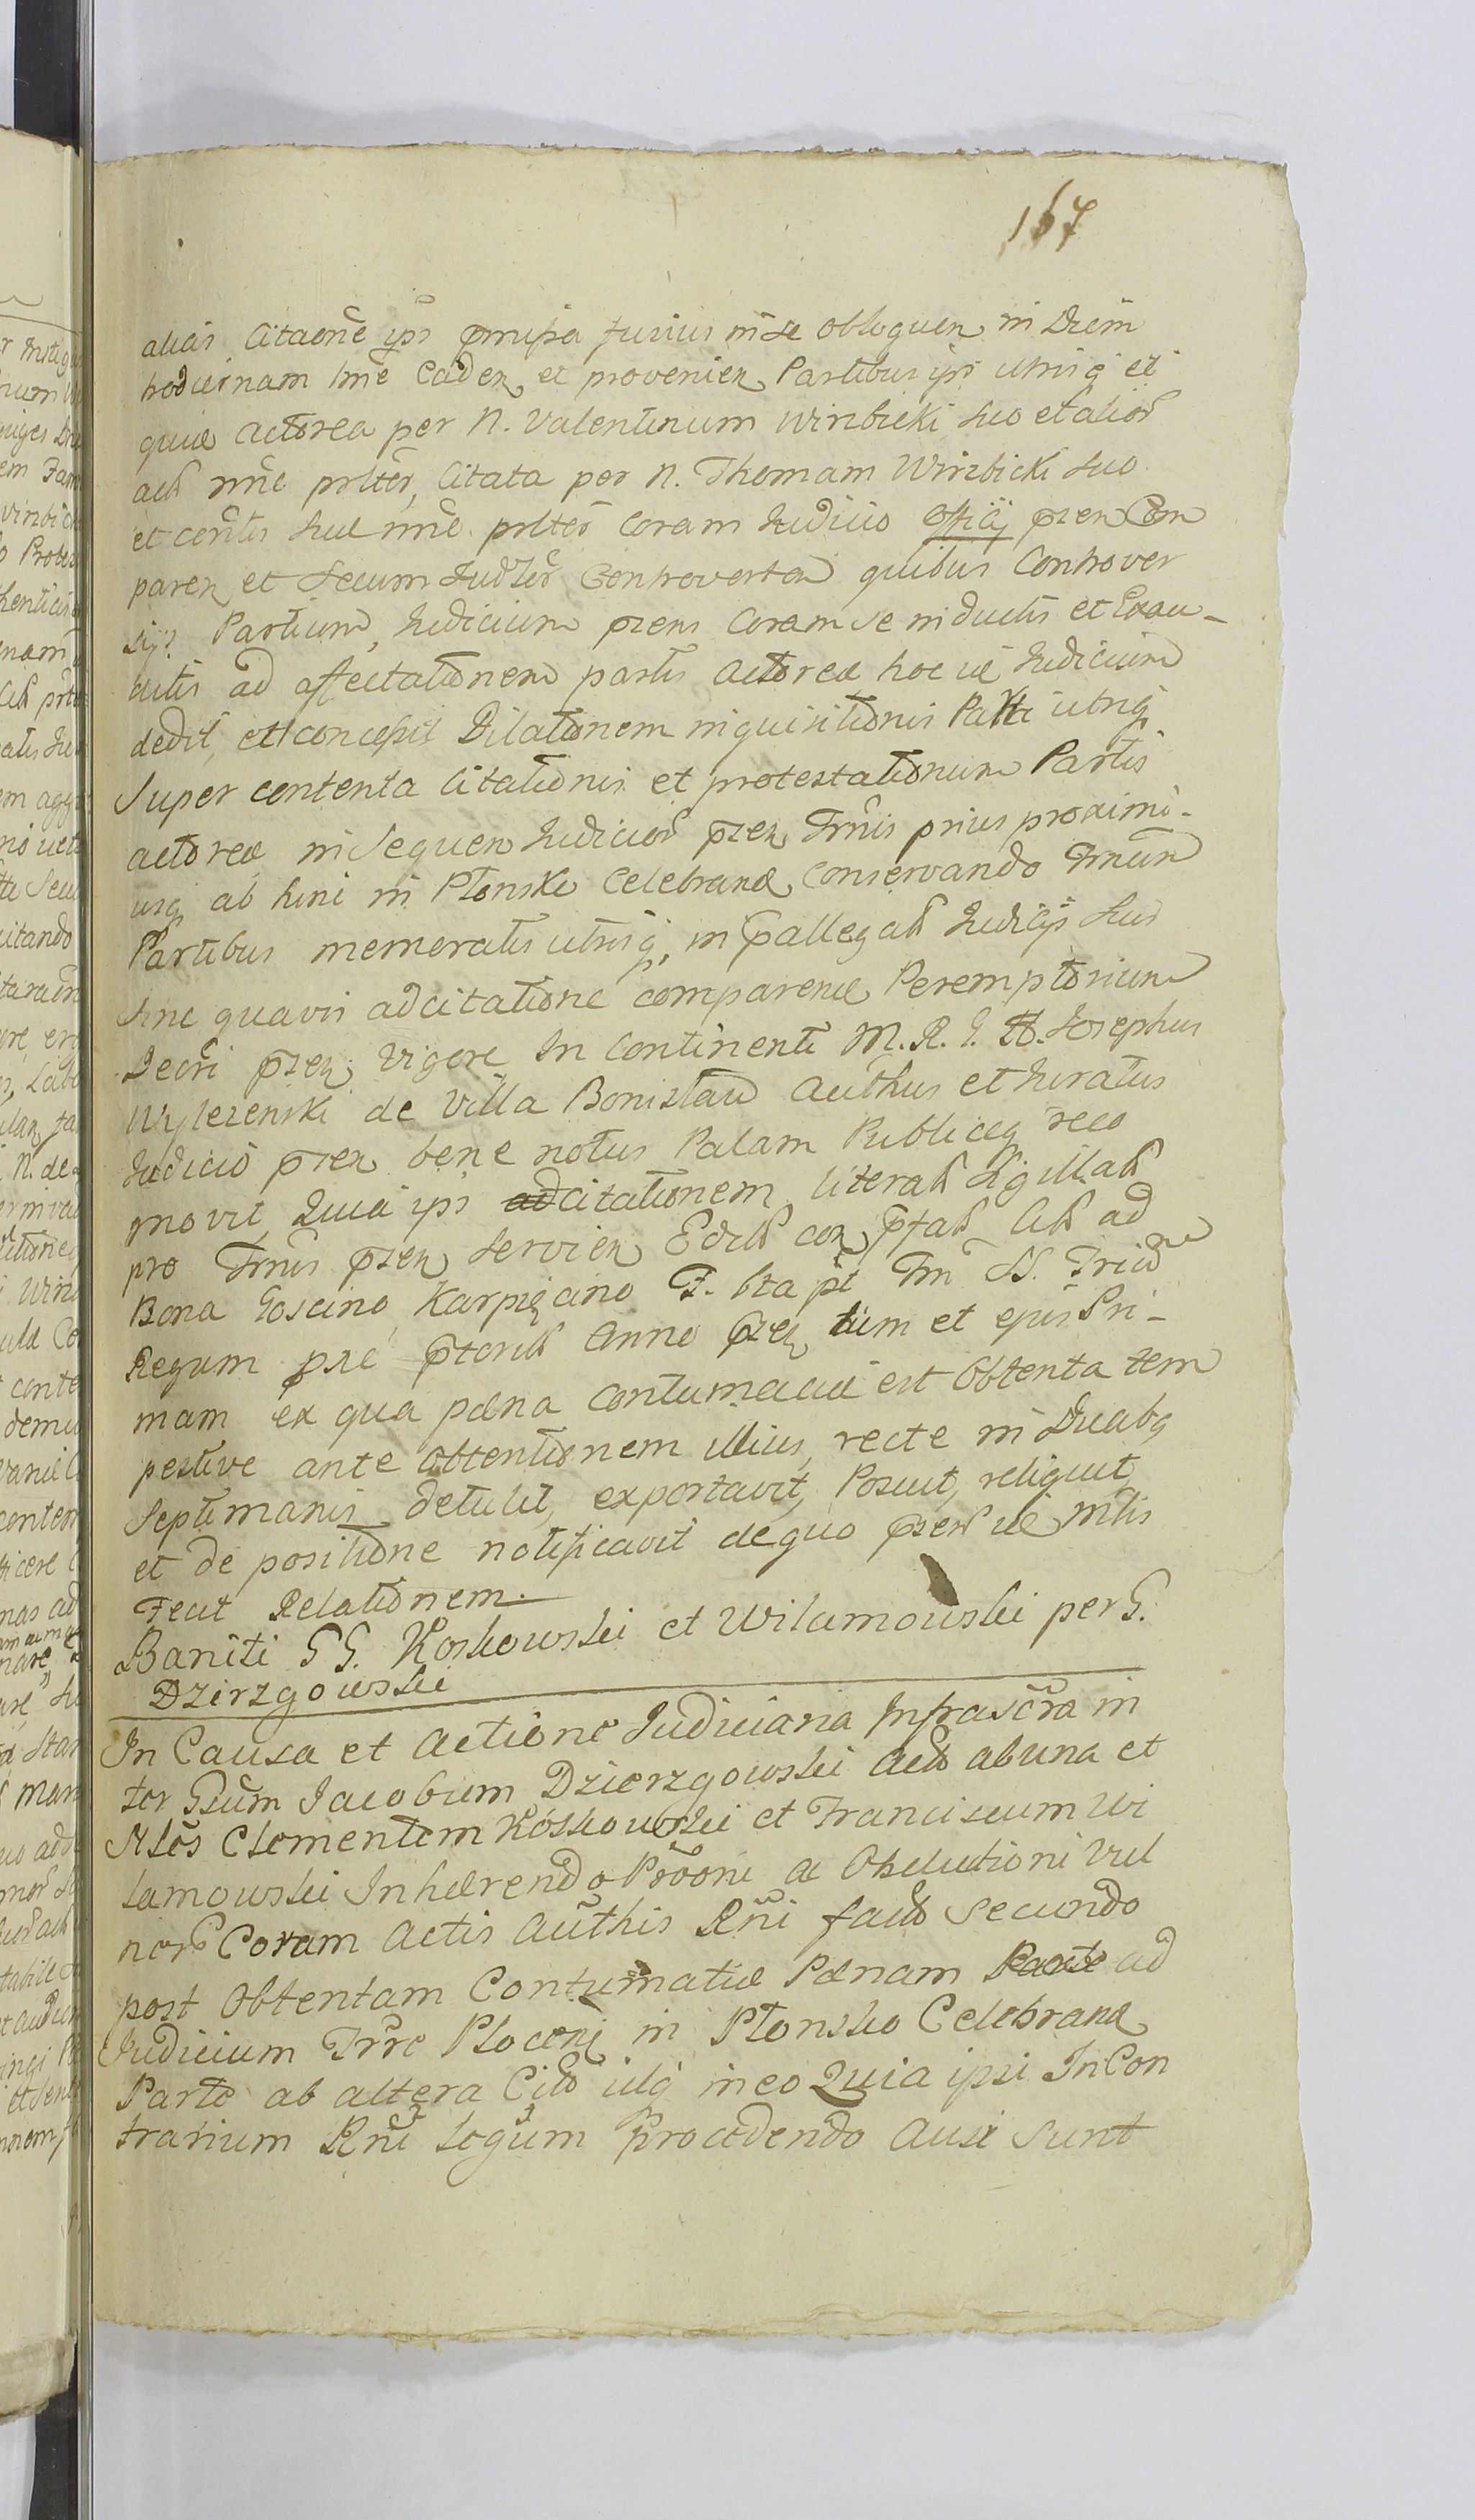 167
alias Citaōne ips pmissa fusius in se obloquen in Diem
hodiernam Ime Caden et provenien Partibus ips utrisq et
quid actorea per N. Valentinum Winbicki suo et alior
act nne prlter, Citata per N. Thomam Winbicki suo
et centis sue nne prlter Coram Judicio Officij pren Com
paren et Secum Judler Controverten quibus Controver
sijs Partium, Judicium prens Coram se inductis et Exau-
ditis ad affectationem partis actorea hoc id Judicium
dedit, et concessit Dilationem inquisitionis Parti utriq
Super contenta Citationis et protestationum Partis
actorea in sequen Judicior pren Trnis prius proximi-
usq ab hinc in Plonsko Celebrand Conservando Trnum
Partibus memoratis utrisq, in pallegat Judicijs suis
sine quavis adcitatione comparend Peremptorium
Decri pren vigore In Continenti M. R. G. Josephus
Wylezenski de Villa Bonislaw Authus et Juratus
Judicio pren bene notus Palam Publiceq reco
gnovit, Quia ips citationem literat Sigillat
pro Trnis pren servien Edit con ptat Cit ad
Bona Goscino Karpięcino F. 6ta pt Fm SS. Triu
Regum pre ptorit Anno pren tum et ejus Pri-
mam ex qua pæna contumacia est Obtenta tem
pestive ante obtentionem illius, recte in Duabq
Septimanis detulit, exportavit, Posuit, reliquit
et de positione notificavit de quo pren id Mtis
Fecit Relationem.
Baniti GG. Koskowski et Wilamowski per G.
Dzirzgowski
In Causa et Actione Judiciaria Infrascra in
ter Gsum Jacobum Dzierzgowski Acto ab una et
Nles Clementem Koskowski et Franciscum Wi
lamowski Inhærendo Prooni ac Obductioni Vul
nerr Coram Actis Authis Rni facto Secundo
post Obtentam Contumatiæ Pænam ad
Judicium Trre Plocen in Plonsko Celebrand
Parte ab altera Citto idq in eo Quia ipsi In Con
trarium Rni Legum procedendo Ausi Sunt